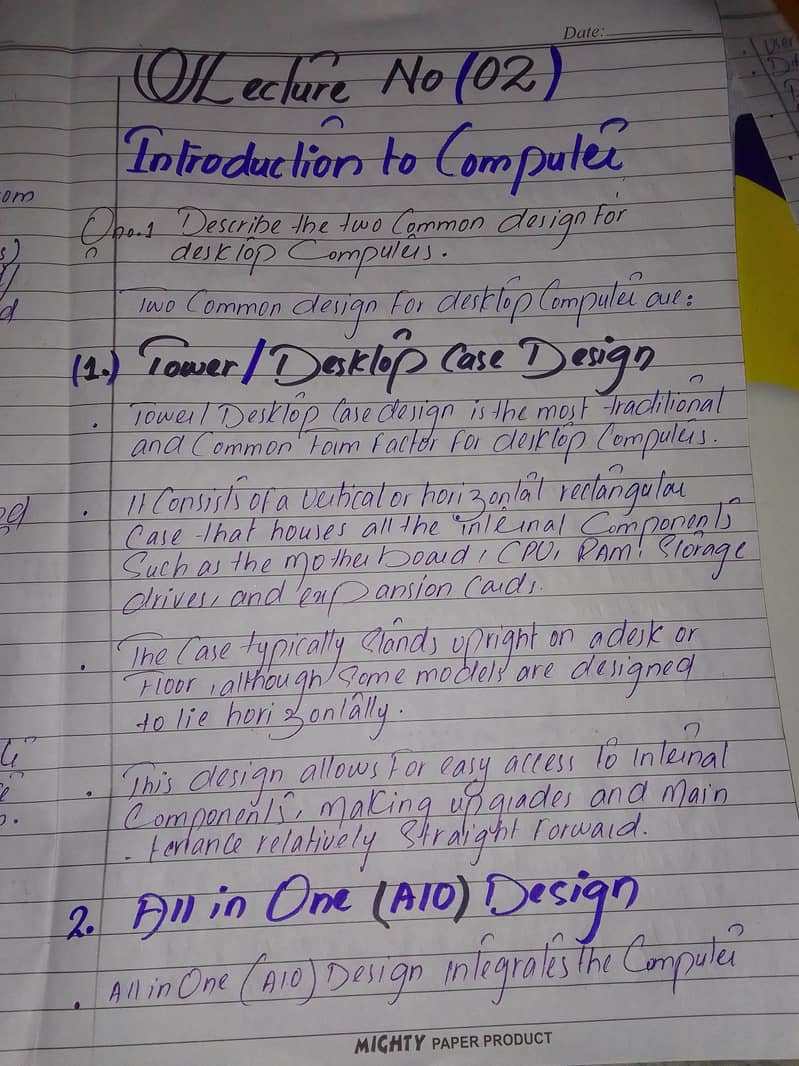 Date:
Lecture No (02)
Introduction to Computer
Qno.1 Describe the two Common design For
desktop Computers.
Two Common design For desktop Computer are:
(1.) Tower/Desktop Case Design
. Tower/Desktop Case design is the most traditional
and Common Form Factor For desktop Computers.
. It Consists of a vertical or horizontal rectangular
Case that houses all the internal Components
Such as the motherboard, CPU, RAM, Storage
drives, and expansion Cards.
. The Case typically Stands upright on a desk or
Floor, although Some models are designed
to lie horizontally.
. This design allows For easy access To internal
Components, making upgrades and main
- tenance relatively Straight Forward.
2. All in One (AIO) Design
. All in One (AIO) Design integrates the Computer
MIGHTY PAPER PRODUCT